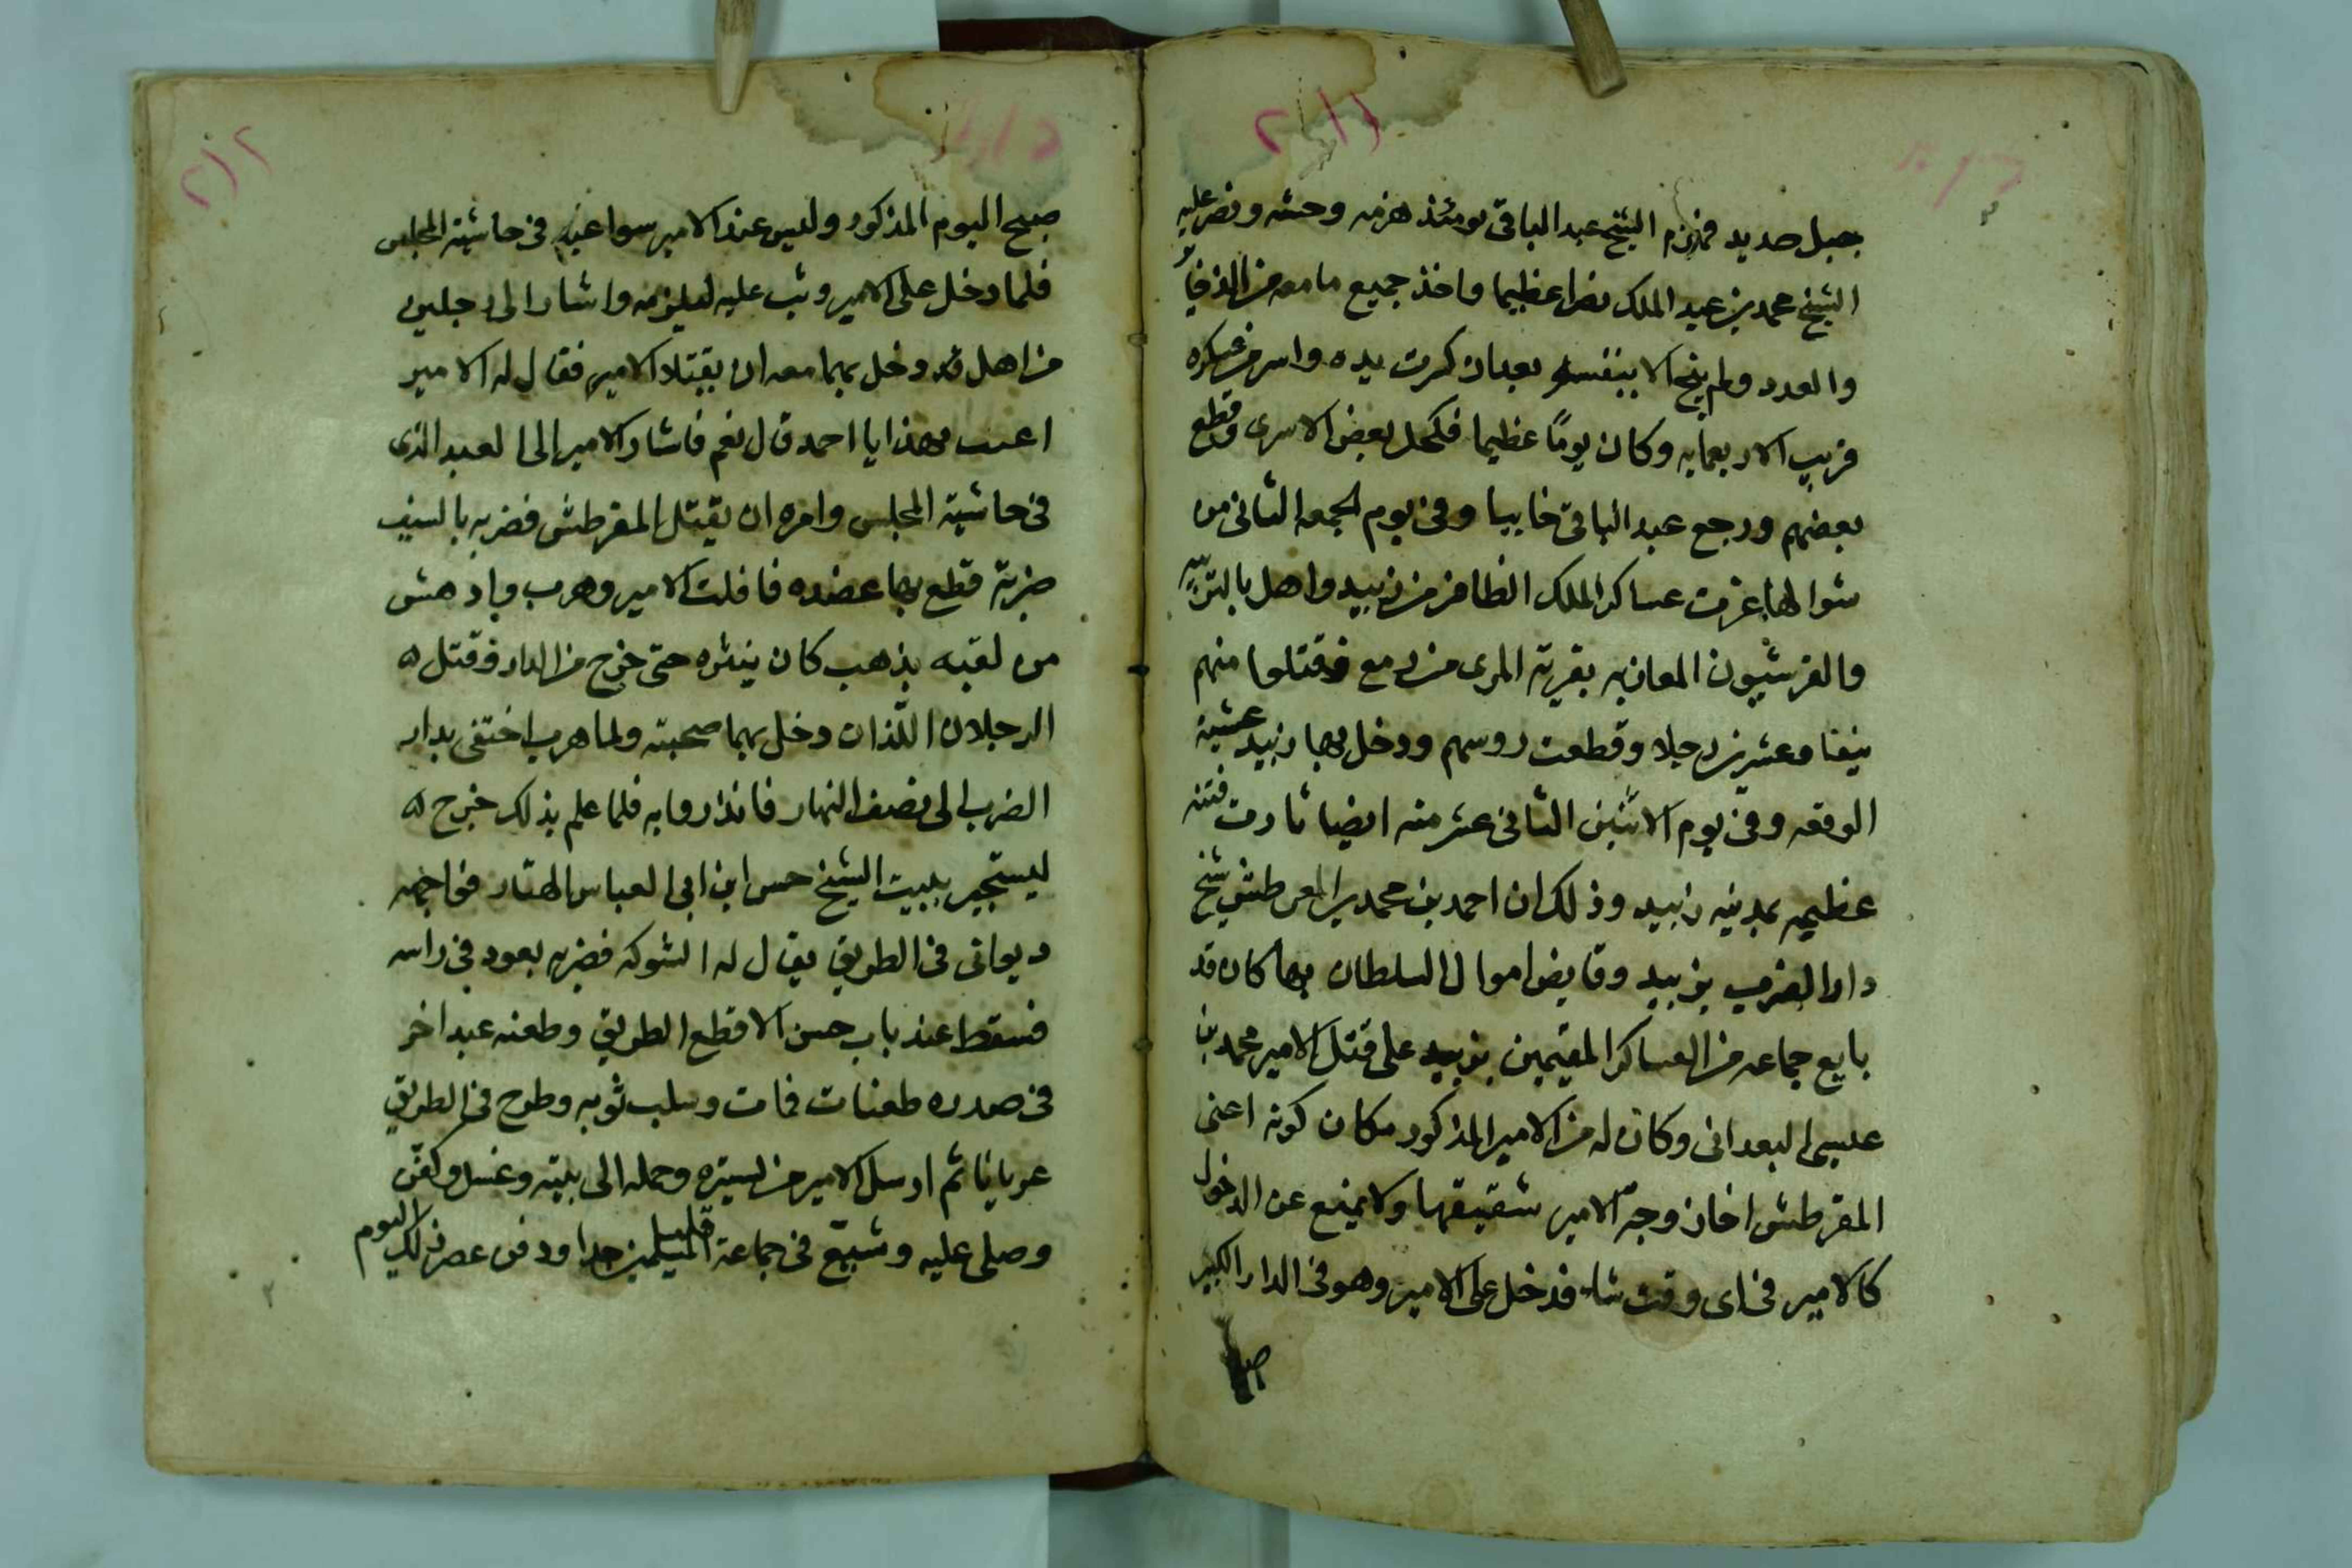 ٢١١
جبل صديد فهزم الشيخ عبد الباقى يومئذ هزمه وحشه ونصر عليه
الشيخ محمد بن عبد الملك نصرا عظيما واخذ جميع ما معه من الذخاير
والعدد ولم ينج الا بنفسه بعد ان كسرت يده واسر من عسكره
قريب الاربعمايه وكان يومًا عظيما فكحل بعض الاسرى وقطع
بعضهم ورجع عبد الباقى خايبا وفى يوم الجمعه الثانى من
شوالها غزت عساكر الملك الظافر من زبيد واهل بالتريبه
والقرشيون المعازبه بقرية المرى من رمع فقتلوا منهم
نيفا وعشرين رجلا وقطعت روسهم ودخل بها زبيد عشية
الوقعه وفى يوم الاثنين الثانى عشر منه ايضا ثارت فتنه
عظيمه بمدينه زبيد وذلك ان احمد بن محمد بن المقرطش شيخ
دار الضرب بزبيد وقابض اموال السلطان بها كان قد
بايع جماعه من العساكر المقيمين بزبيد على قتل الامير محمد بن
عيسى البعدانى وكان له من الامير المذكور مكان كونه اعنى
المقرطش اخا زوجة الامير شقيقها ولا يمنع عن الدخول
كالامير فى اى وقت شاء فدخل على الامير وهو فى الدار الكبير
٢١٢
صبح اليوم المذكور وليس عند الامير سوا عبد فى حاشية المجلس
فلما دخل على الامير وثب عليه ليلزمه واشار الى رجلين
من اهل قد دخل بهما معه ان يقتلا الامير فقال له الامير
اعىىت بهذا يا احمد قال نعم فاشار الامير الى العبد الذى
فى حاشية المجلس وامره ان يقتل المقرطش فضربه بالسيف
ضربة قطع بها عضده فافلت الامير وهرب وادهش
من لقيه بذهب كان ينثره حتى خرج من الدار وقتل
الرجلان اللّذان دخل بهما صحبته ولما هرب اختفى بدار
الضرب الى نصف النهار فانذروا به فلما علم بذلك خرج
ليستجير ببيت الشيخ حسن ابن ابى العباس الهتار فواجهه
ديوانى فى الطريق يقال له الشوكه فضربه بعود فى راسه
فسقط عند باب حسن الاقطع الطريق وطعنه عبد اخر
فى صدره طعنات فمات وسلب ثوبه وطرح فى الطريق
عريانا ثم ارسل الامير من يستره وحمله الى بيته وغسل وكفّن
وصلى عليه وشيّع فى جماعة من المسلمين قليل جدا ودفن عصر ذلك اليوم